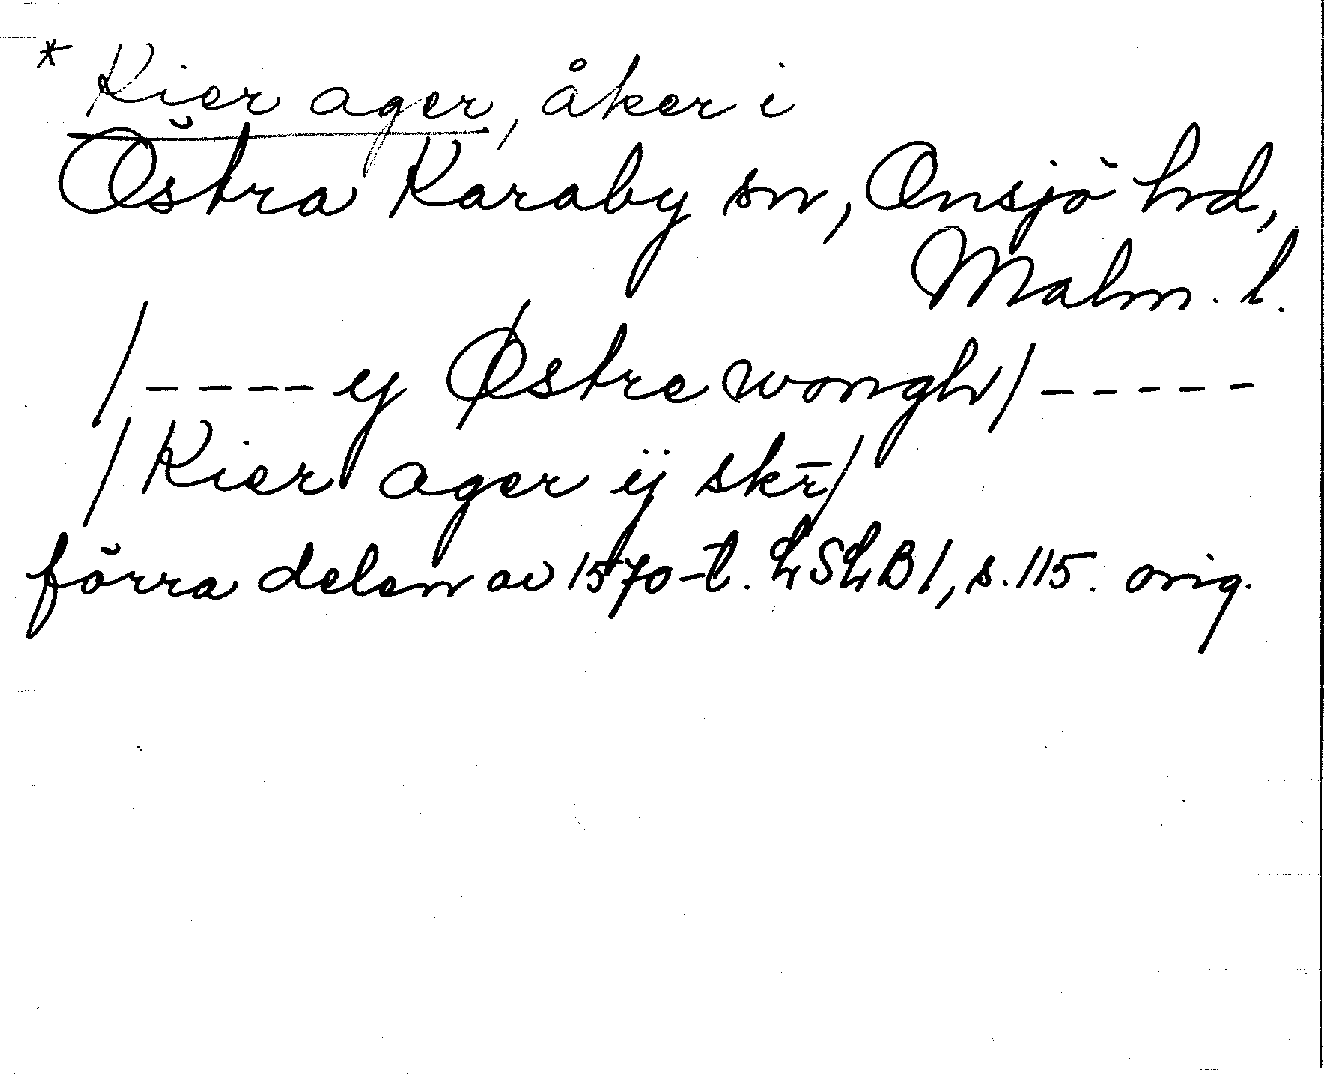 * Kier ager, åker i
Östra Karaby sn, Onsjö hd,
Malm. l.
/---- ij Østre wongh/-----
/Kier ager ij skr̄/
förra delen av 1570-t. LSLB 1, s. 115. orig.